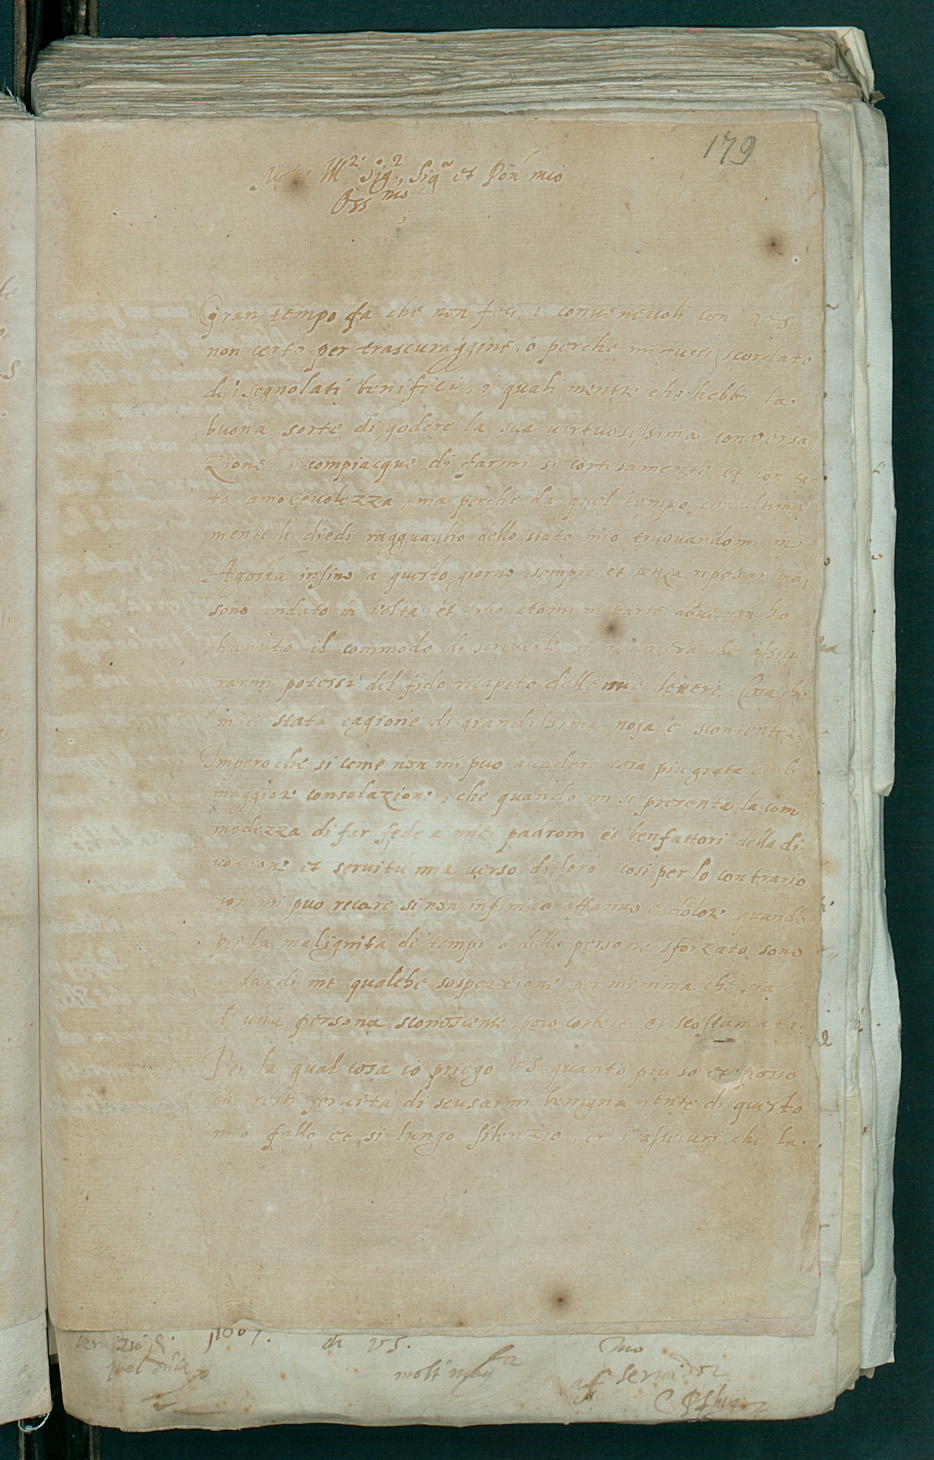 179
Molto M.re Sig.r, Sig.r et Pron mio
Oss.mo
Gran tempo fa che non feci i convenevoli con V S
non certo per trascuraggine, o perche mi fussi scordato
di i segnolati benifici, i quali mentre che hebbi la
buona sorte di godere la sua virtuosissima conversa
zione si compiacque di farmi si cortesamente et con tan
ta amorevolezza, ma perche da quel tempo ch ultima
mente li diedi ragguaglio dello stato mio truovandomi in
Agosta insino a questo giorno sempre et senza riposar mai
sono andato in volta et truovatomi in parte dove non ho
havuto il commodo di scriverli in maniera che assicu
rarmi potessi del fido ricapito delle mie lettere. Cosa che
m'è stata cagione di grandissima noja e scontentezza
Imperoche si come non mi puo accadere cosa piu grata et di
maggior consolazione, che quando mi si presenta la com
modezza di far fede a miei padroni et benfattori della di
vozione et servitù mia verso di loro cosi per lo contrario
non mi puo recare si non infinito affanno e dolore quando
per la malignità de tempi o delle persone sforzato sono
a dar di me qualche sospezzione per minima che sia
d'una persona sconoscente, poco cortese et scostumata.
Per la qual cosa io priego V S quanto piu so et posso
che resti servita di scusarmi benignamente di questo
mio fallo et si lungo silenzio, et s'assicuri che la
servizio di 1607. di V S. mo
aff servidor